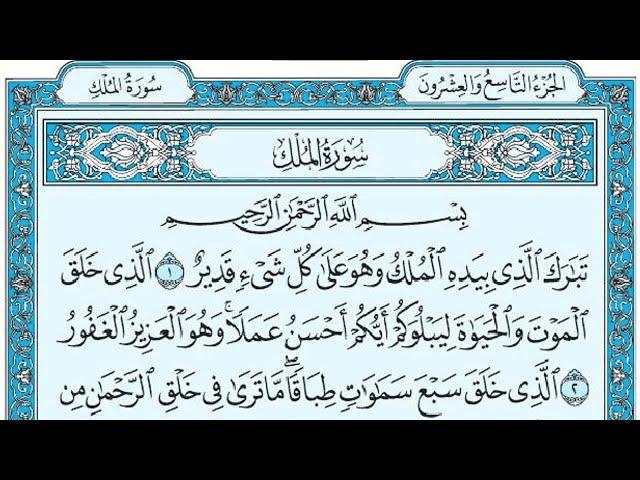 الجزء التاسع والعشرون
سورة الملك
سُورَةُ المُلْكِ
بِسْمِ اللَّهِ الرَّحْمَٰنِ الرَّحِيمِ
تَبَارَكَ الَّذِي بِيَدِهِ الْمُلْكُ وَهُوَ عَلَىٰ كُلِّ شَيْءٍ قَدِيرٌ ١ الَّذِي خَلَقَ
الْمَوْتَ وَالْحَيَاةَ لِيَبْلُوَكُمْ أَيُّكُمْ أَحْسَنُ عَمَلًا ۚ وَهُوَ الْعَزِيزُ الْغَفُورُ
٢ الَّذِي خَلَقَ سَبْعَ سَمَاوَاتٍ طِبَاقًا ۖ مَا تَرَىٰ فِي خَلْقِ الرَّحْمَٰنِ مِن